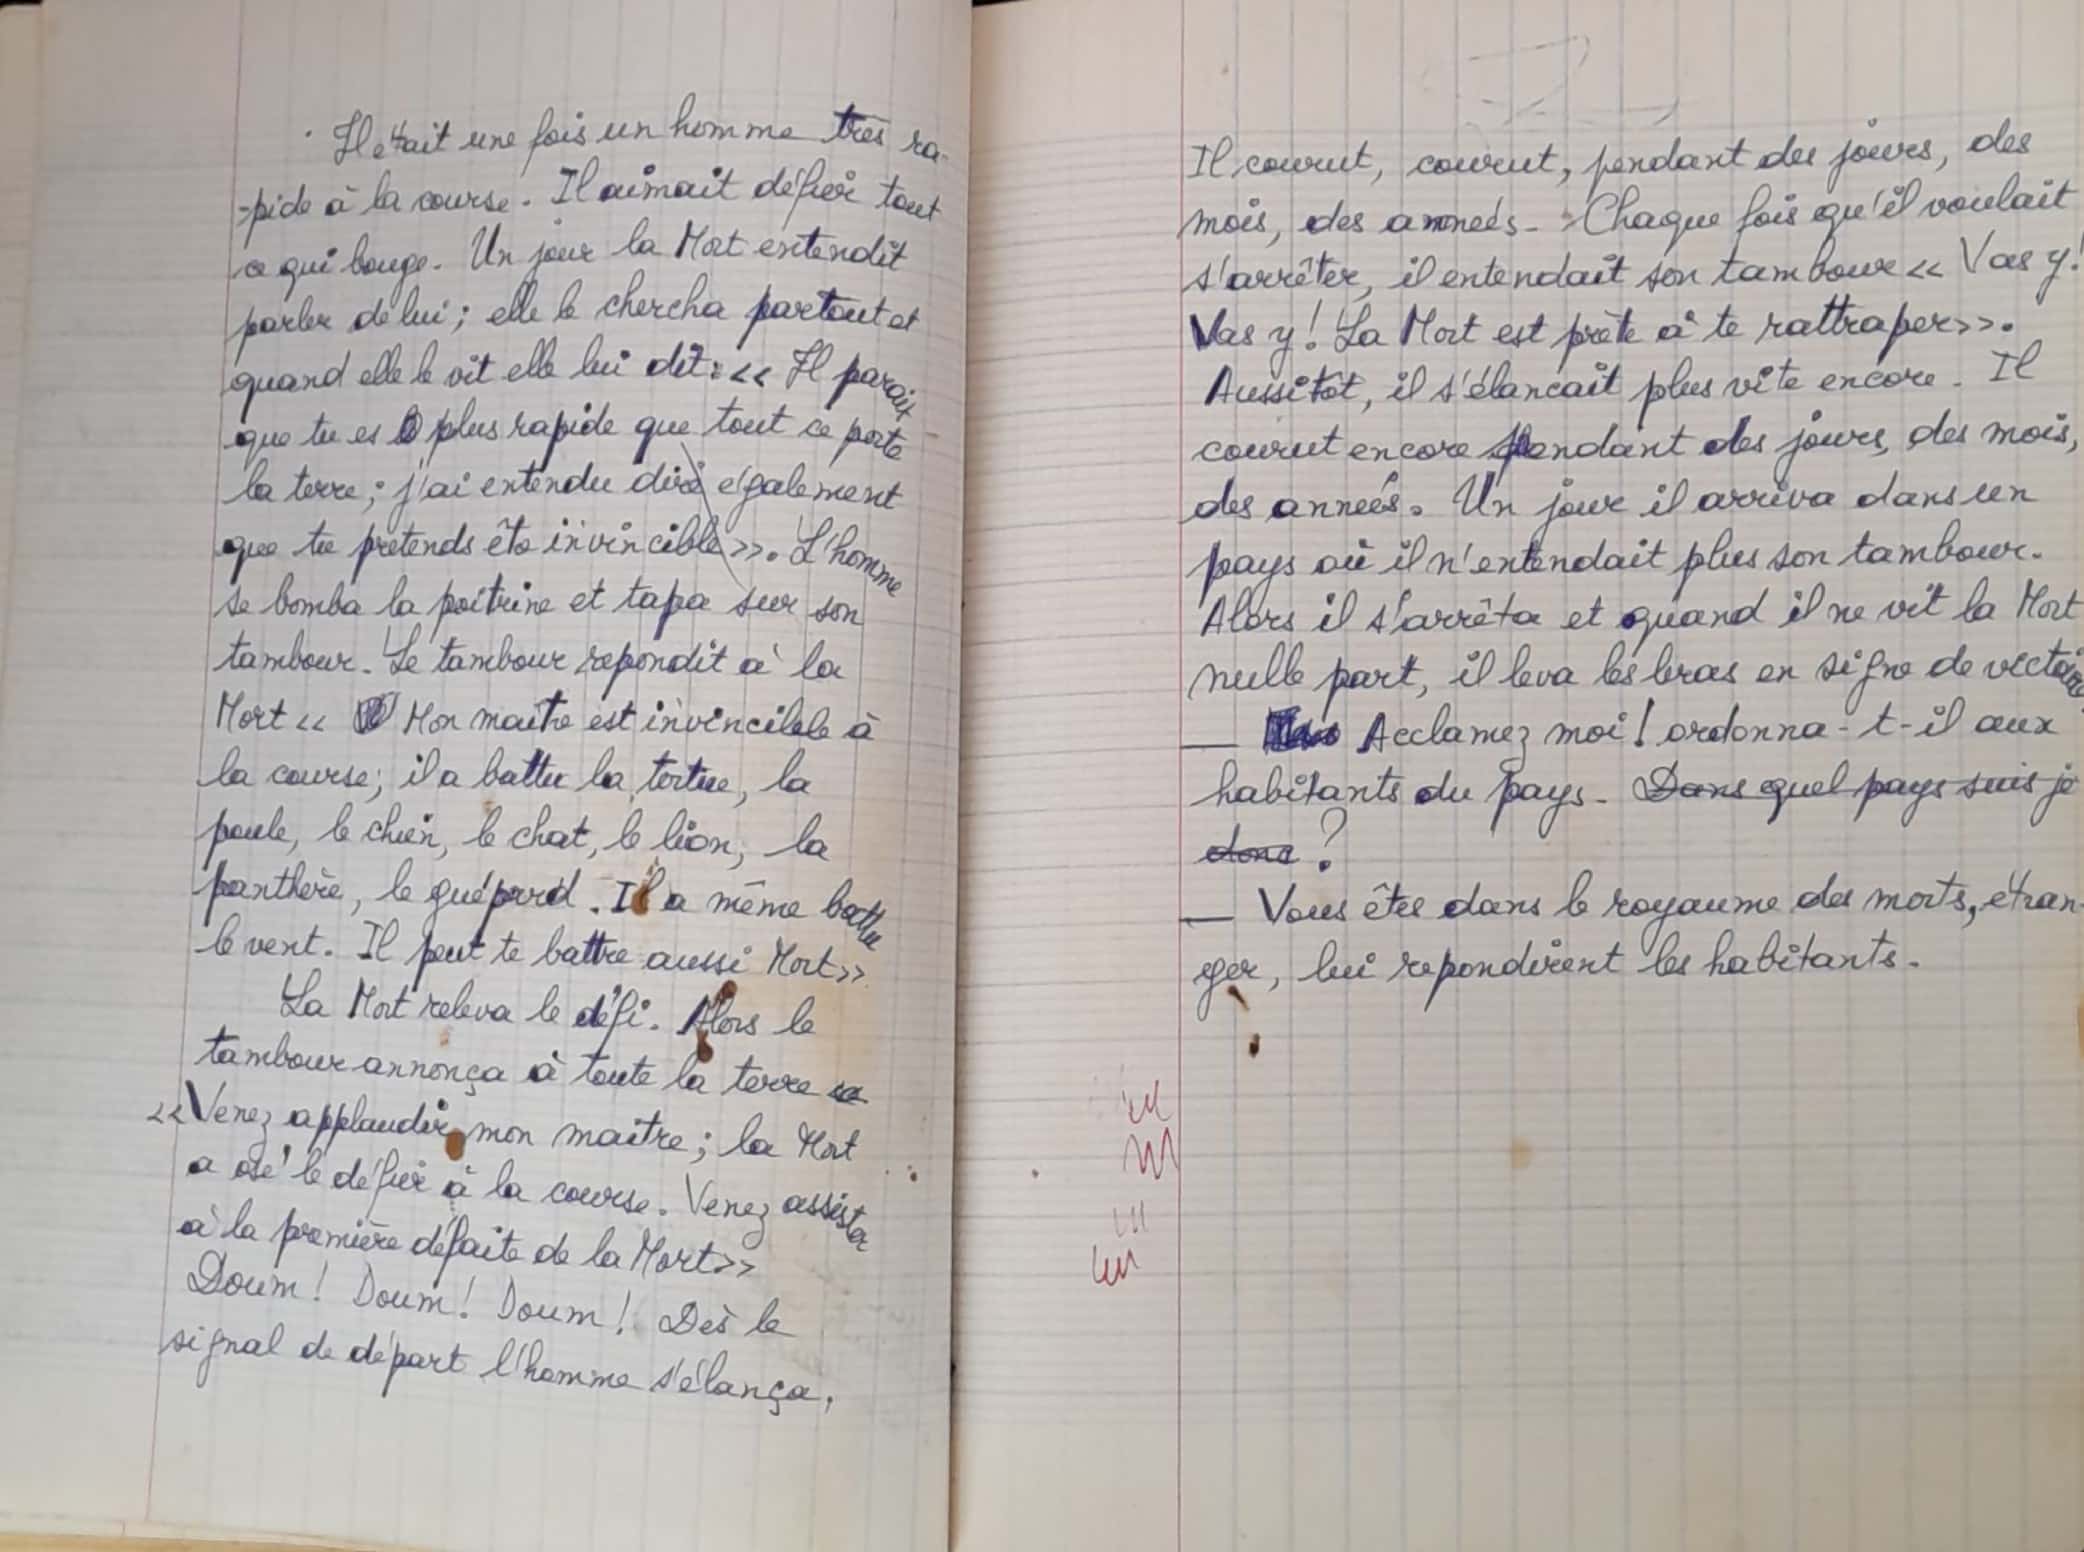 Il était une fois un homme très ra-
-pide à la course. Il aimait défier tout
ce qui bouge. Un jour la Mort entendit
parler de lui; elle le chercha partout et
quand elle le vit elle lui dit: << Il parait
que tu es plus rapide que tout ce porte
la terre; j'ai entendu dire également
que tu prétends être invincible >>. L'homme
se bomba la poitrine et tapa sur son
tambour. Le tambour repondit à la
Mort << Mon maître est invincible à
la course; il a battu la tortue, la
poule, le chien, le chat, le lion, la
panthère, le guépard. Il a même battu
le vent. Il peut te battre aussi Mort>>
La Mort releva le défi. Alors le
tambour annonça à toute la terre
<<Venez applaudir mon maître; la Mort
a osé le défier à la course. Venez assister
à la première défaite de la Mort>>
Doum! Doum! Doum! Dès le
signal de départ l'homme s'élança,
Il courut, courut, pendant des jours, des
mois, des années. Chaque fois qu'il voulait
s'arrêter, il entendait son tambour << Vas y!
Vas y! La Mort est prête à te rattraper>>.
Aussitot, il s'élancait plus vite encore. Il
courut encore pendant des jours, des mois,
des années. Un jour il arriva dans un
pays où il n'entendait plus son tambour.
Alors il s'arrêta et quand il ne vit la Mort
nulle part, il leva les bras en signe de victoire
— Acclamez moi! ordonna-t-il aux
habitants du pays. Dans quel pays suis je
donc ?
— Vous êtes dans le royaume des morts, étran-
ger, lui repondirent les habitants.